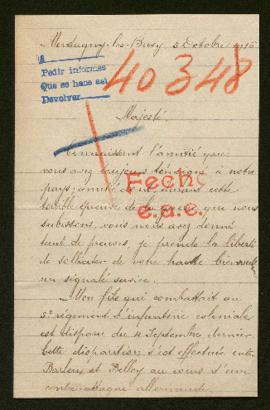 5 Octobre 1916
Pedir informes
Que se hace así
Devolver
40348
Majesté
Connaissant l'amitié que
vous avez toujours témoigné à notre
pays, amitié dont durant cette
terrible épreuve de la guerre que nous
subissons, vous nous avez donné
tant de preuves, je prends la liberté
de solliciter de votre haute bienveil
un signalé service.
Fech
e.a.c.
Mon fils qui combattait au
5e régiment d'infanterie coloniale
est disparu du 4 Septembre dernier
Cette disparition s'est effectuée entre
Barleux et Belloy au cours d'une
contre attaque allemande